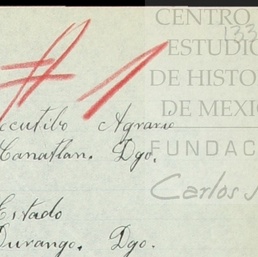 # 1
CENTRO
133
ESTUDIO
DE HISTO
DE MEXI
ecutibo Agrario
Canatlan. Dgo.
FUNDAC
Carlos
Estado
Durango. Dgo.